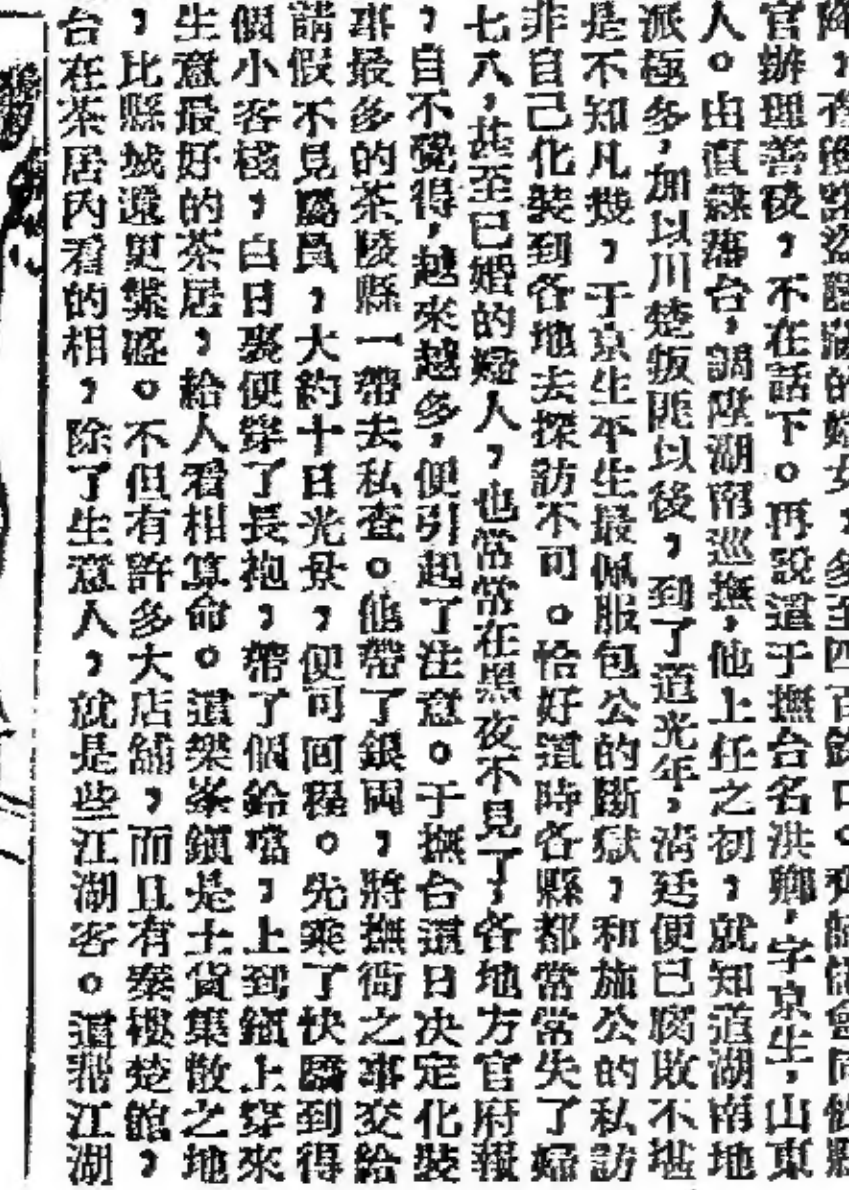 官辦理善後，不在話下。再說這于撫台名洪鄉，字京生，山東
人。由直隸藩台，調陞湖南巡撫，他上任之初，就知道湖南地
派極多，加以川楚叛匪以後，到了道光年，清廷便已腐敗不堪
是不知凡幾，于京生平生最佩服包公的斷獄，和施公的私訪
非自己化裝到各地去探訪不可。恰好這時各縣都常常失了婦
七八，甚至已婚的婦人，也常常在黑夜不見了，各地方官府報
，自不覺得，越來越多，便引起了注意。于撫台這日決定化裝
事最多的茶陵縣一帶去私查。他帶了銀両，將撫衙之事交給
請假不見屬員，大約十日光景，便可回程。先乘了快騎到得
個小客棧，白日裏便穿了長袍，帶了個鈴噹，上到鎮上穿來
生意最好的茶居，給人看相算命。這架峯鎮是土貨集散之地
，比縣城還更繁盛。不但有許多大店舖，而且有秦樓楚館，
台在茶居內看的相，除了生意人，就是些江湖客。這帮江湖